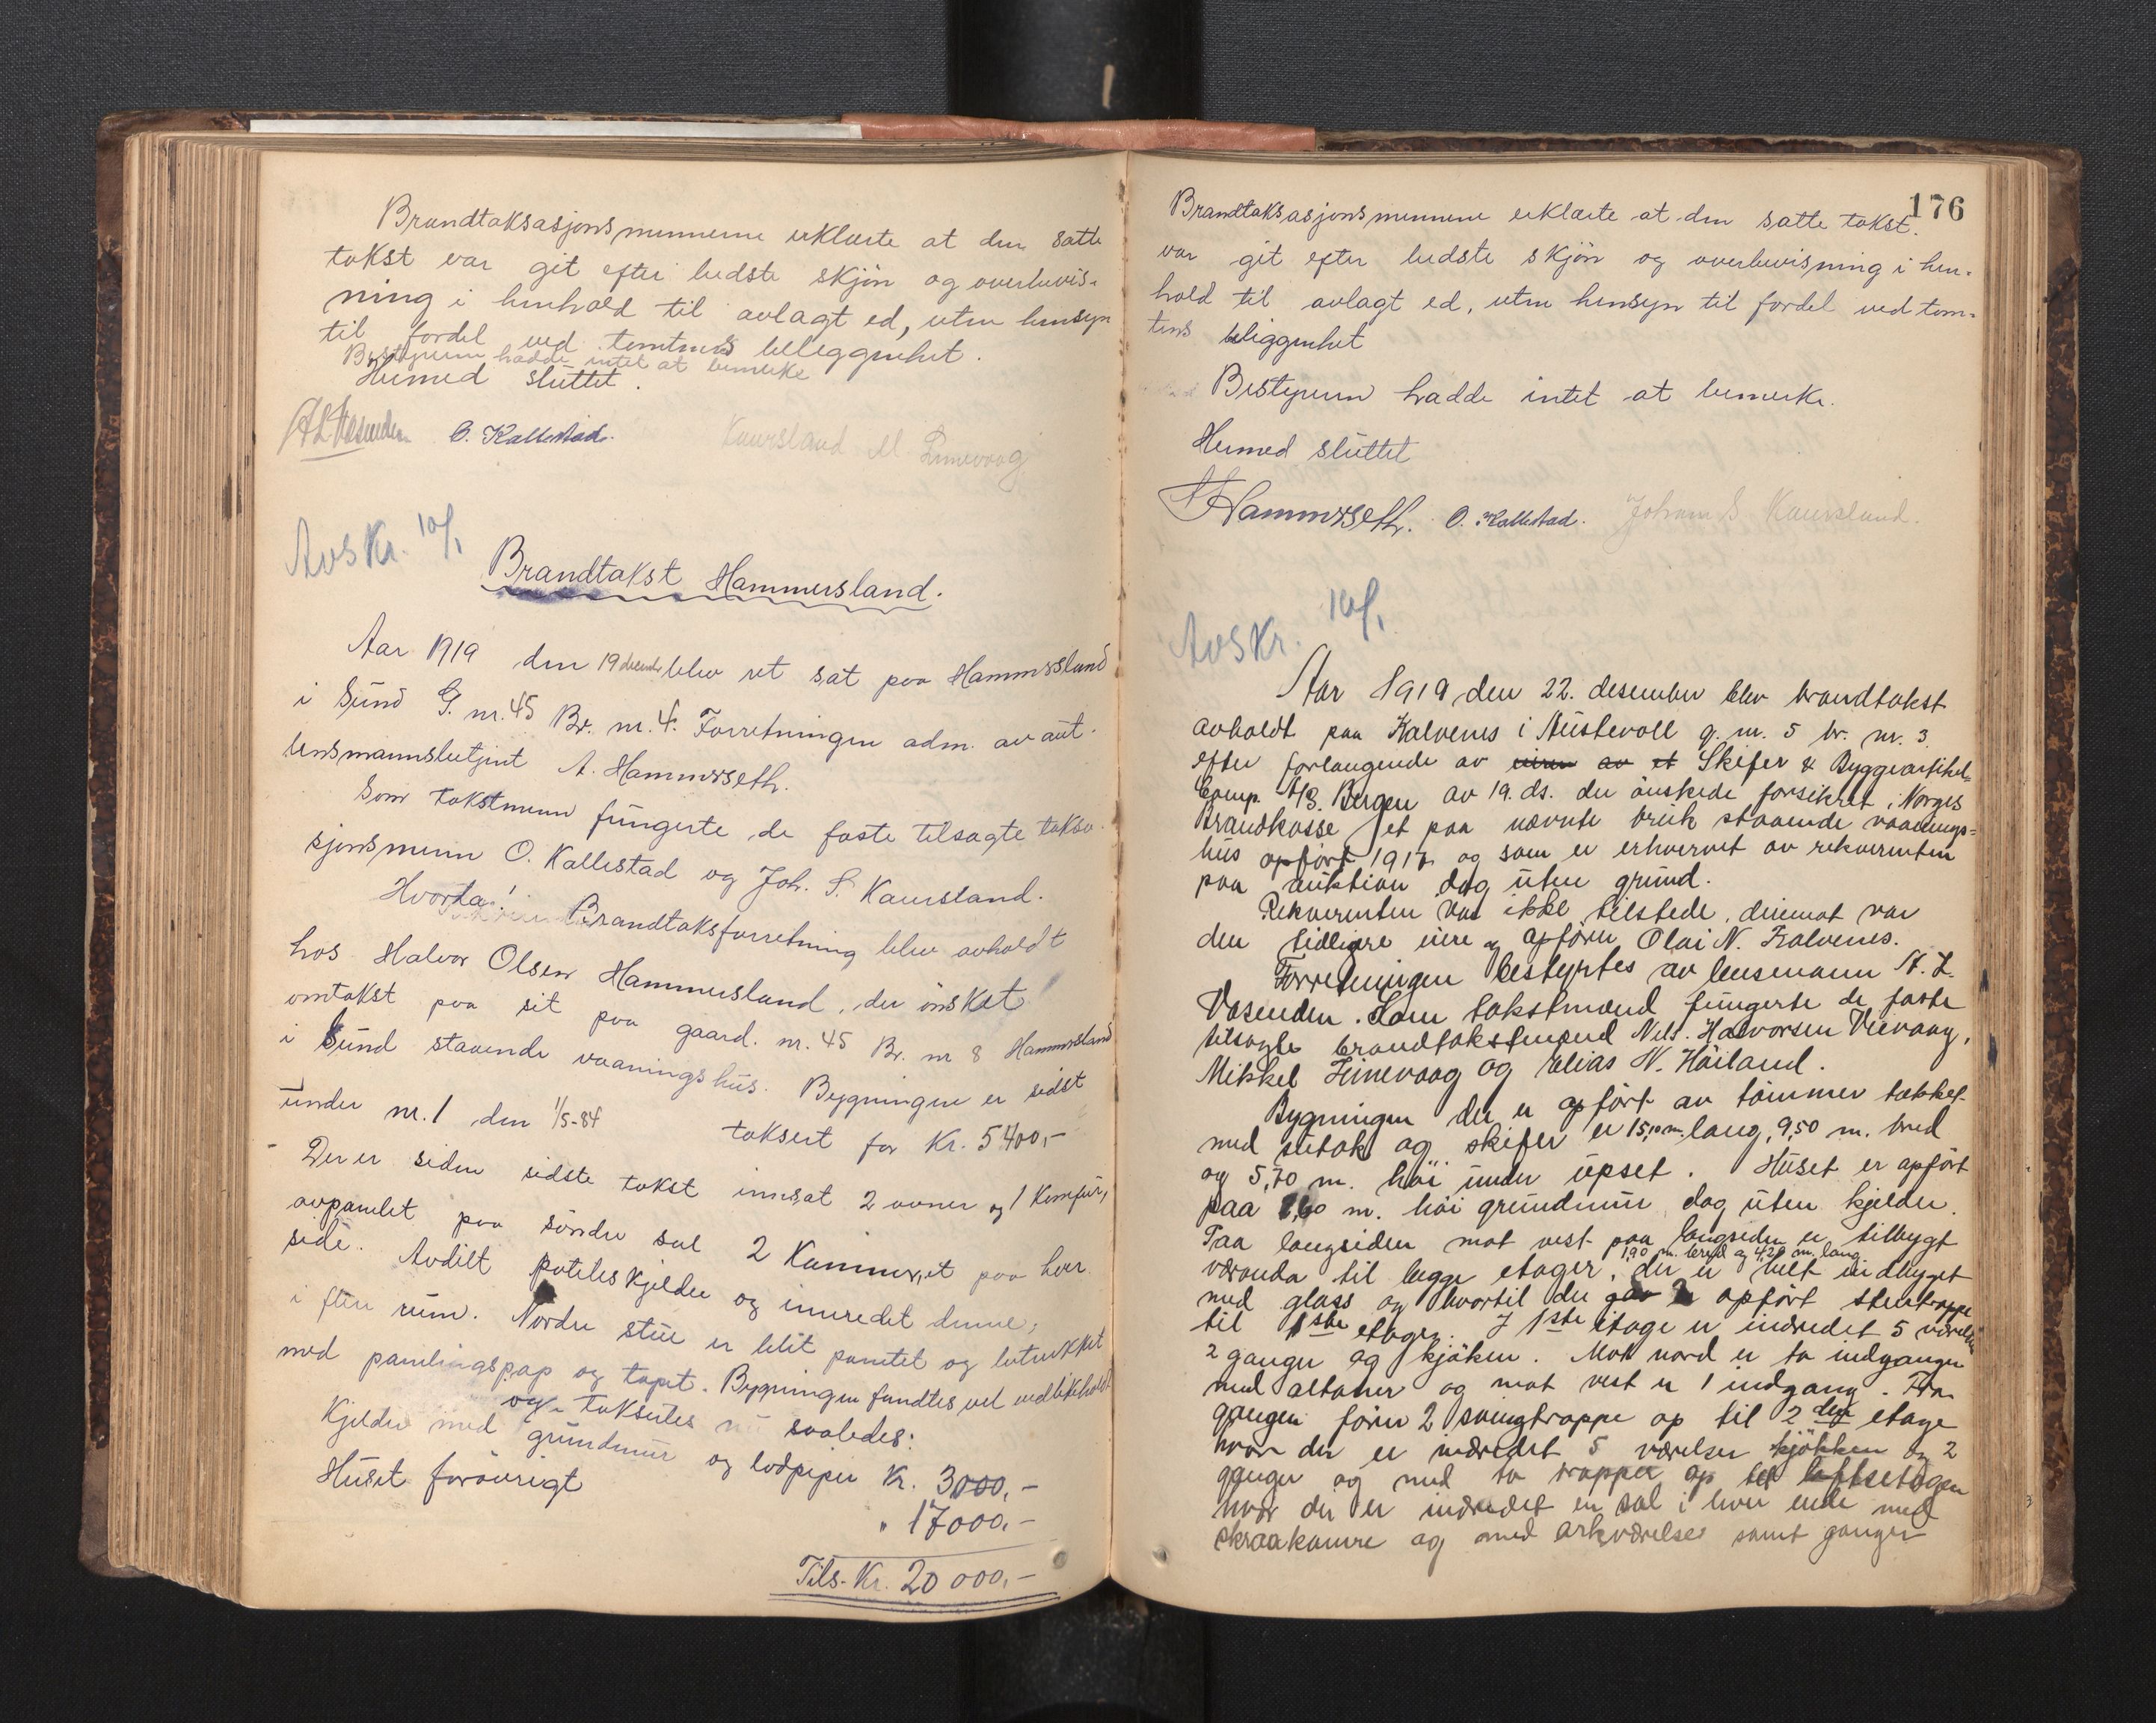 Brandtaksasjonsmennene erklærte at den satte
takst var git efter bedste skjön og overbevis-
ning i henhold til avlagt ed, uten hensyn
til fordel ved tomtens beliggenhet.
Bestyreren hadde intet at bemerke
Hermed sluttet.
O. Kallestad.
Kaursland
Avskr. 10/1
Brandtakst Hammersland.
Aar 1919 den 19 decembr blev ret sat paa Hammersland
i Sund G. nr. 45 Br. nr. 4. Forretningen adm. av aut.
lensmannsbetjent A. Hammerseth.
Som takstmenn fungerte de faste tilsagte taksa-
sjonsmenn O. Kallestad og Joh. S. Kaursland.
Hvorda!
Brandtaksforretning blev avholdt
hos Halvor Olsen Hammersland, der önsket
omtakst paa sit paa gaard. nr. 45 Br. nr 8 Hammersland
i Sund staaende vaaningshus. Bygningen er sidst
under nr. 1 den 1/5-84 taksert for Kr. 5400,-
Der er siden sidste takst innsat 2 ovner og 1 Komfur,
avpanelet paa söndre sal 2 Kammer, et paa hver
side. Avdelt poteteskjelder og innredet denne,
i flere rum. Nordre stue er blit panelet og betrukket
med panelingspap og tapet. Bygningen fandtes vel vedlikeholdt
og taksertes nu saaledes:
Kjelder med grundmur og lodpiper Kr. 3000,-
Huset forövrigt " 17000,-
Tils. Kr. 20 000,-
176
Brandtaksasjonsmennene erklærte at den satte takst.
var git efter bedste skjön og overbevisning i hen-
hold til avlagt ed, uten hensyn til fordel ved tom-
tens beliggenhet
Bestyreren hadde intet at bemerke.
Hermed sluttet
A Hammerseth. O. Kallestad. Johann S. Kaursland.
Avskr. 10/1
Aar 1919 den 22. desember blev brandtakst
avholdt paa Kalvenes i Austevoll g. nr. 5 br. nr. 3.
efter forlangende av eieren av et Skifer & Byggeartikel-
Comp. A/S. Bergen av 19. ds. der önskede forsikret i Norges
Brandkasse et paa nævnte bruk staaende vaanings-
hus opfört 1917 og som er erhvervet av rekvirenten
paa auktion dog uten grund.
Rekvirenten var ikke tilstede, derimot var
den tidligere eiere og opförer Olai N. Kalvenes.
Forretningen bestyrtes av lensmann A. L.
Vasenden. Som takstmænd fungerte de faste
tilsagte brandtakstmænd Nils. Halvorsen Vievaag,
Mikkel Linevaag og Elias N. Höiland.
Bygningen der er opfört av tömmer tækket
med sutak og skifer er 15,10 m. lang, 9,50 m. bred
og 5,70 m. höi under upset. Huset er opfört
paa 1,60 m. höi grundmur dog uten kjelder.
Paa langsiden mot vest paa langsiden er tilbygt
1,90 m. bred og 4,20 m. lang
væranda til begge etager, der er helt indbyget
med glass og hvortil der opfört stentrappe
til 1ste etager. I 1ste etage er indredet 5 værelser
2 ganger og kjöken. Mot nord er to indganger
med altaner og mot vest er 1 indgang. Fra
gangen förer 2 svingtrappe op til 2den etage
hvor der er indredet 5 værelser kjökken og 2
ganger og med to trapper op til loftsetagen
hvor der er indredet en sal i hver ende med
skraakamre og med arkværelser samt ganger